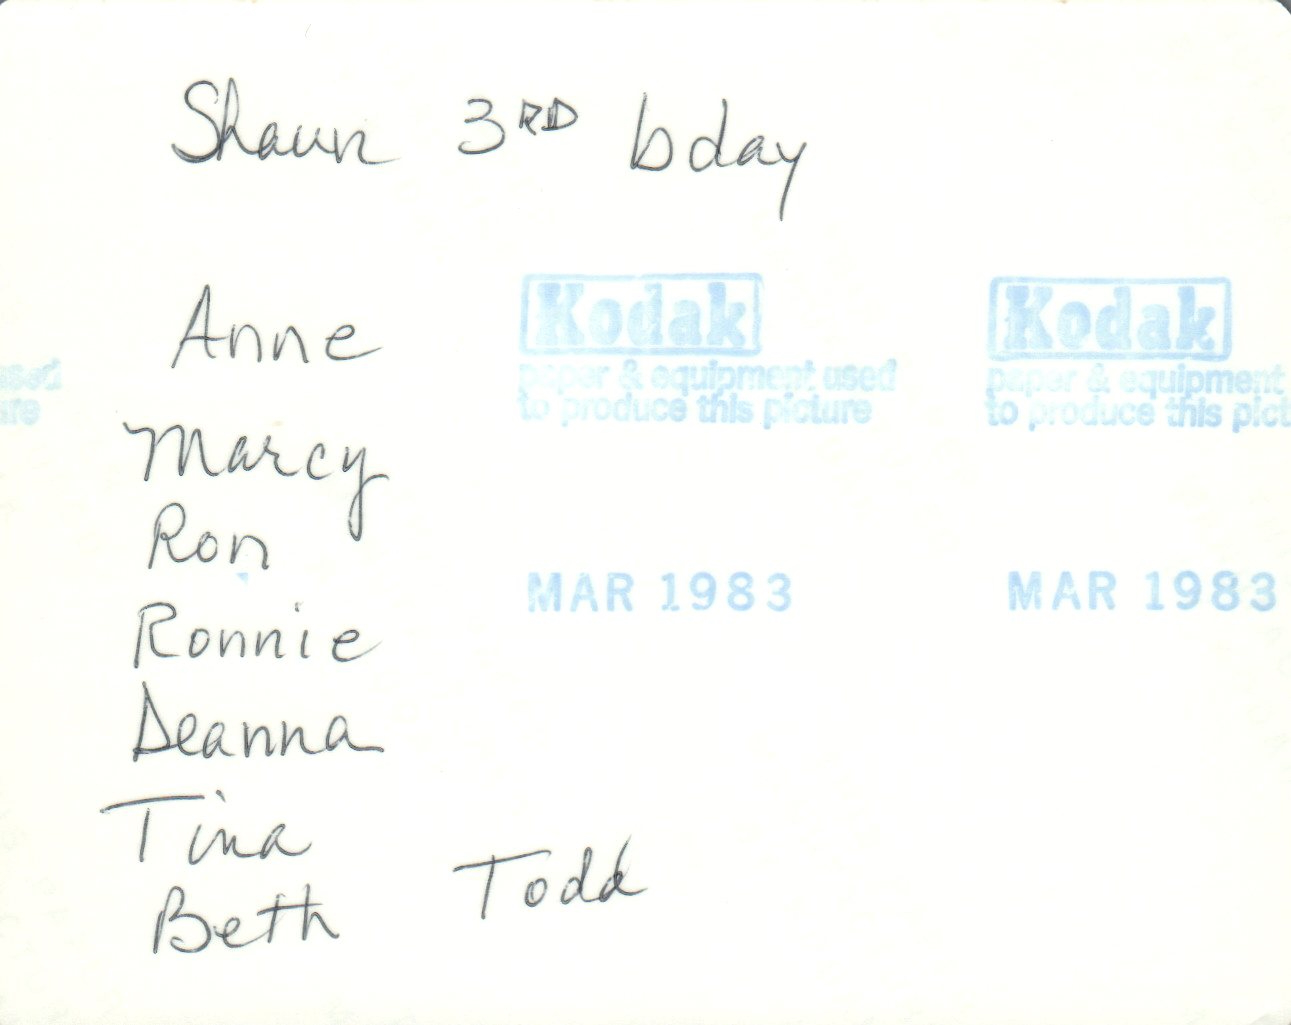 Shaun 3RD bday
Anne
Kodak Kodak
paper & equipment used paper & equipment
to produce this picture to produce this pict
used
ure
Marcy
Ron
MAR 1983 MAR 1983
Ronnie
Deanna
Tina
Todd
Beth